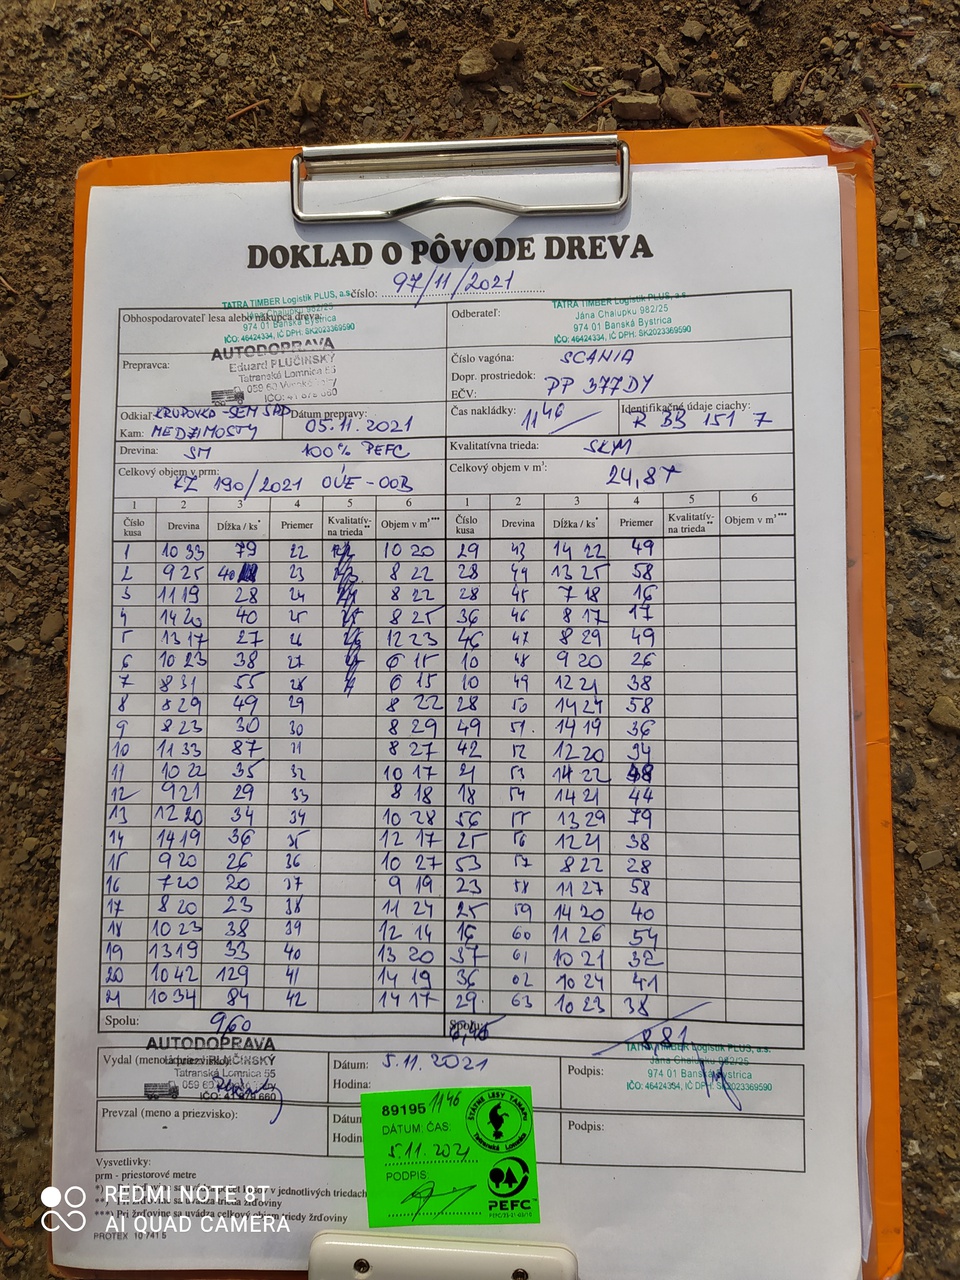 DOKLAD O PÔVODE DREVA
číslo: 97/11/2021
Obhospodarovateľ lesa alebo nákupca dreva:
TATRA TIMBER Logistik PLUS, a.s.
Jána Chalupku 982/25
974 01 Banská Bystrica
IČO: 46424334, IČ DPH: SK2023369590
Odberateľ:
TATRA TIMBER Logistik PLUS, a.s.
Jána Chalupku 982/25
974 01 Banská Bystrica
IČO: 46424334, IČ DPH: SK2023369590
Prepravca:
AUTODOPRAVA
Eduard PLUČINSKÝ
Tatranská Lomnica 55
Číslo vagóna: SCANIA
Dopr. prostriedok:
EČV: PP 377DY
Odkiaľ KRUPOVKA-SEM SAD
Kam: MEDZIMOSTY
Dátum prepravy:
05.11.2021
Čas nakládky: 11 46
Identifikačné údaje ciachy:
R BB 151 7
Drevina: SM 100% PEFC
Kvalitatívna trieda: SKM
Celkový objem v prm:
KZ 190/2021 OÚE-OOB
Celkový objem v m³:
24,87
1 2 3 4 5 6 1 2 3 4 5 6
Číslo kusa Drevina Dĺžka / ks* Priemer Kvalitatív-na trieda** Objem v m³*** Číslo kusa Drevina Dĺžka / ks* Priemer Kvalitatív-na trieda** Objem v m³***
1 10 33 79 22 10 20 29 43 14 22 49
2 9 25 40 23 8 22 28 44 13 25 58
3 11 19 28 24 8 22 28 45 7 18 16
4 14 20 40 25 8 25 36 46 8 17 17
5 13 17 27 26 12 23 46 47 8 29 49
6 10 23 38 27 6 15 10 48 9 20 26
7 8 31 55 28 6 15 10 49 12 21 38
8 8 29 49 29 8 22 28 50 14 24 58
9 8 23 30 30 8 29 49 51. 14 19 36
10 11 33 87 31 8 27 42 52 12 20 34
11 10 22 35 32 10 17 21 53 14 22 48
12 9 21 29 33 8 18 18 54 14 21 44
13 12 20 34 34 10 28 56 55 13 29 79
14 14 19 36 35 12 17 25 56 12 21 38
15 9 20 26 36 10 27 53 57 8 22 28
16 7 20 20 37 9 19 23 58 11 27 58
17 8 20 23 38 11 24 25 59 14 20 40
18 10 23 38 39 12 14 16 60 11 26 54
19 13 19 33 40 13 20 37 61 10 21 32
20 10 42 129 41 14 19 36 62 10 24 41
21 10 34 84 42 14 17 29 63 10 23 38
Spolu: 9,60
Spolu: 8,81
Vydal (meno a priezvisko):
AUTODOPRAVA
PLUČINSKÝ
Tatranská Lomnica 55
Dátum: 5.11.2021
Hodina:
Podpis:
TATRA TIMBER Logistik PLUS, a.s.
Jána Chalupku 982/25
974 01 Banská Bystrica
IČO: 46424334, IČ DPH: SK2023369590
Prevzal (meno a priezvisko):
-
Dátum
Hodin
Podpis:
89195 11 46
DÁTUM. ČAS:
5.11.2021
PODPIS
ŠTÁTNE LESY TANAPu
Tatranská Lomnica
PEFC
Vysvetlivky:
prm - priestorové metre
v jednotlivých triedach
**) Pri žrďovine sa uvádza trieda žrďoviny
***) Pri žrďovine sa uvádza celkový objem triedy žrďoviny
PROTEX 10 741 5
REDMI NOTE 8T
AI QUAD CAMERA